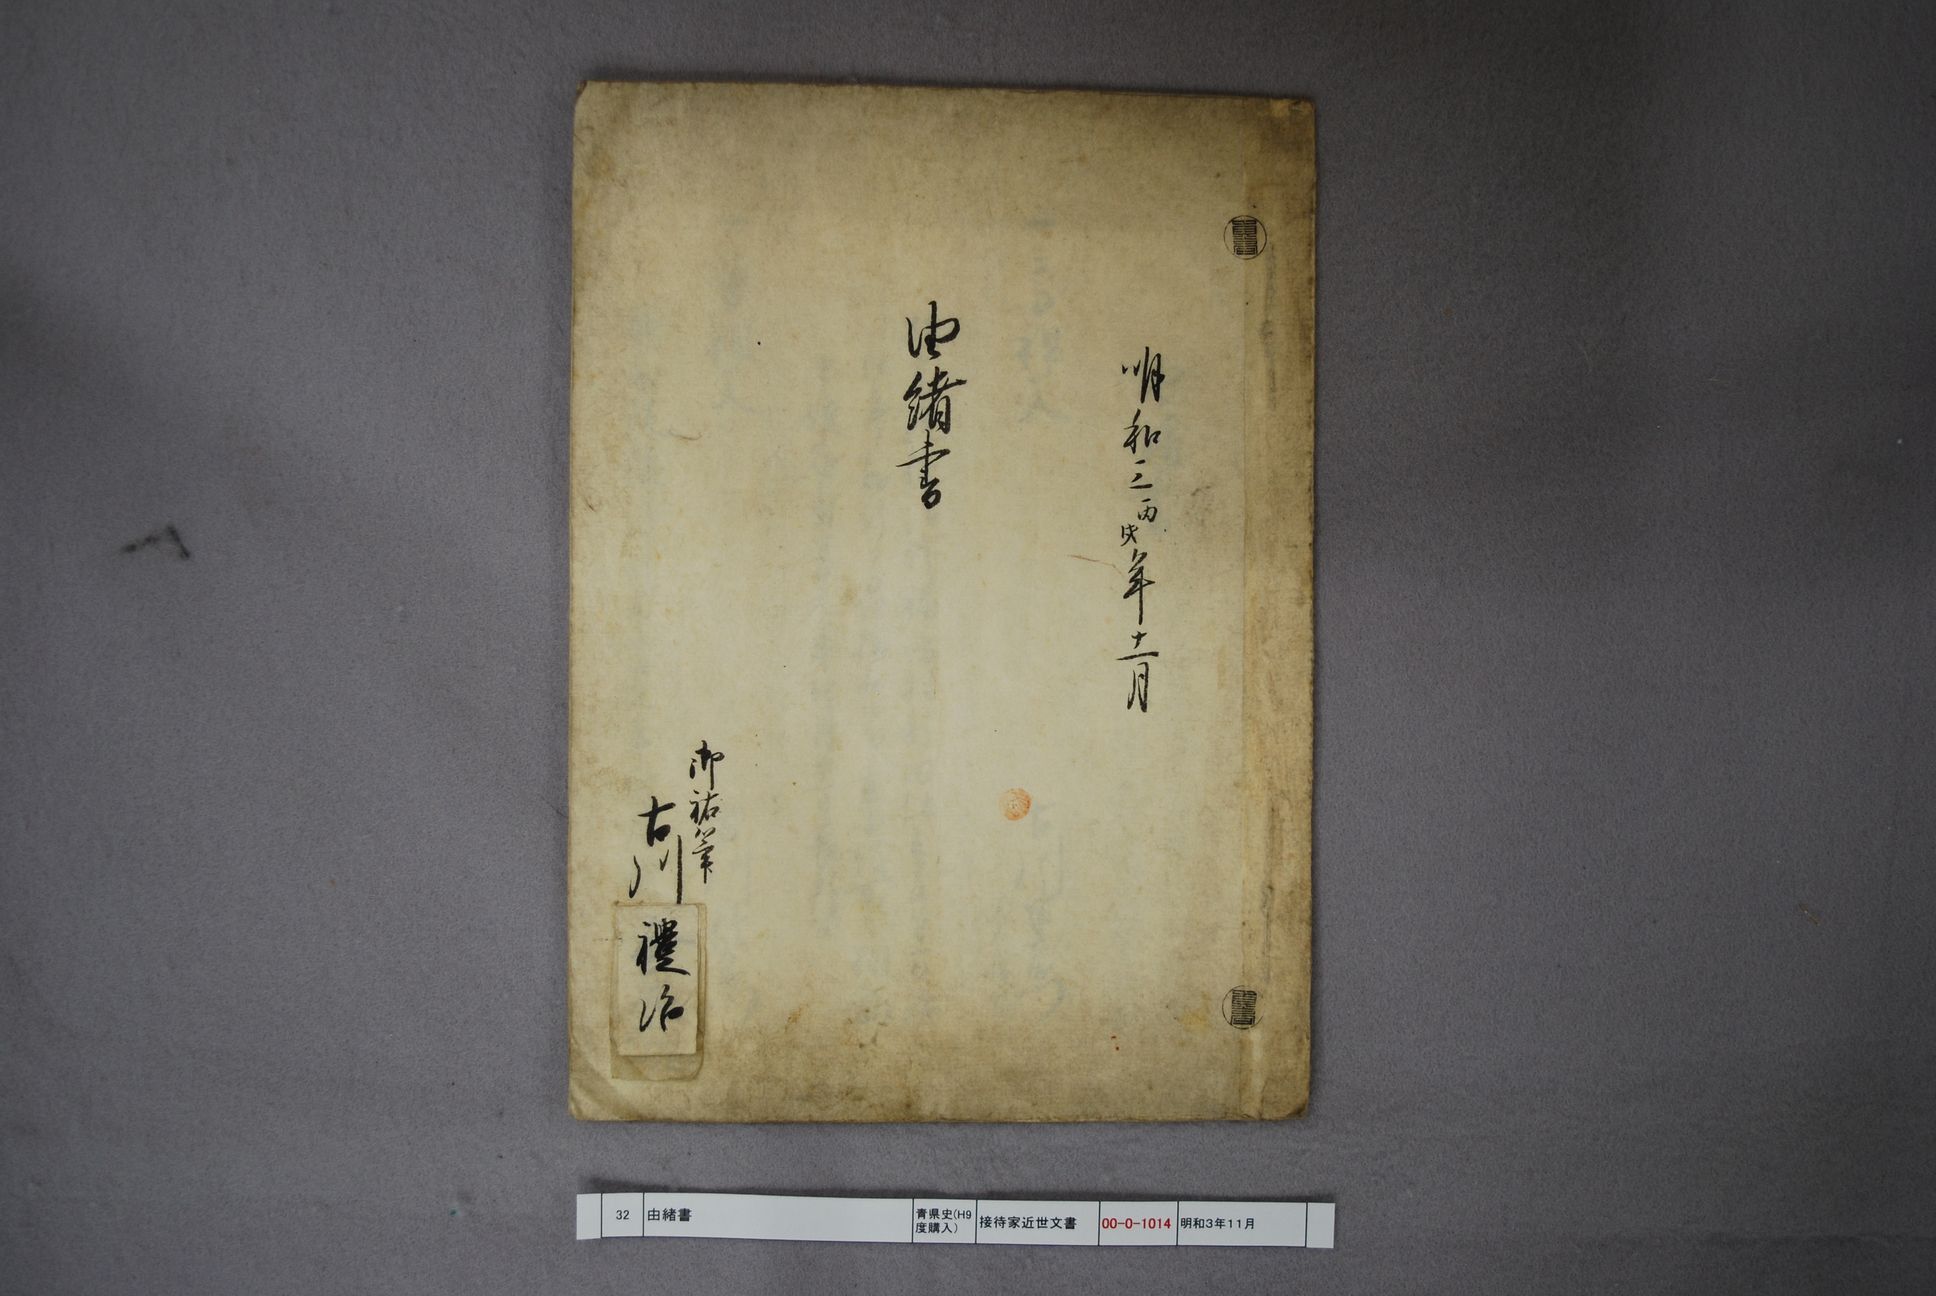 明和三丙戌年十一月
由緒書
御祐筆
古川
禮治
32
由緒書
青県史(H9
度購入)
接待家近世文書
00-0-1014
明和3年11月